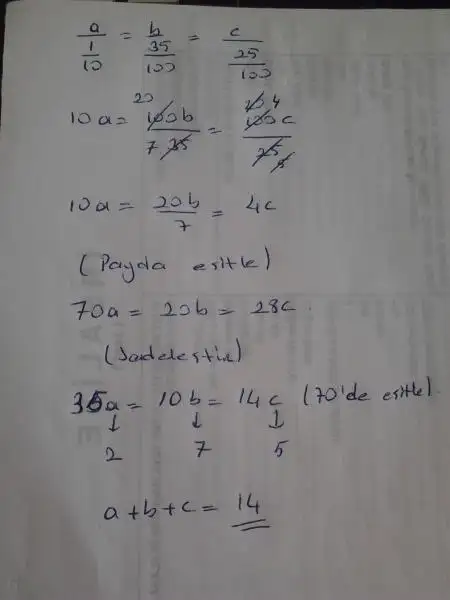 a/(1/10) = b/(35/100) = c/(25/100)
10a = 20 100b/7 35 = 20 4 100c/25 5
10a = 20b/7 = 4c
(Payda eşitle)
70a = 20b = 28c.
(Sadeleştir)
35a = 10b = 14c (70'de eşitle).
↓ ↓ ↓
2 7 5
a+b+c = 14